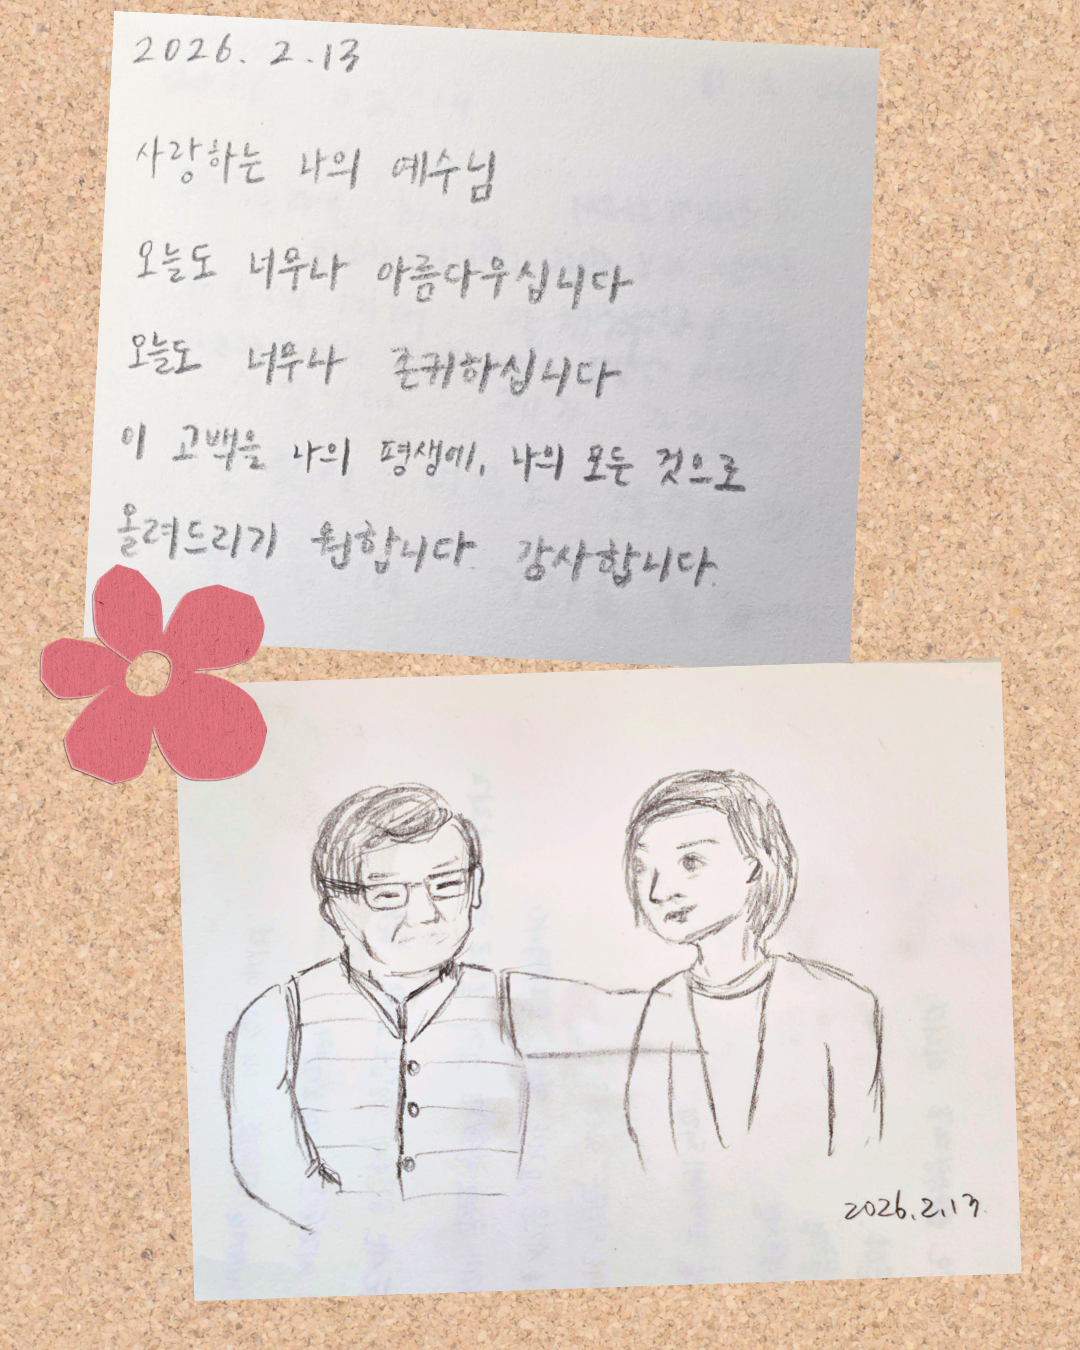 2026. 2. 13
사랑하는 나의 예수님
오늘도 너무나 아름다우십니다
오늘도 너무나 존귀하십니다
이 고백을 나의 평생에, 나의 모든 것으로
올려드리기 원합니다. 감사합니다.
2026. 2. 13.